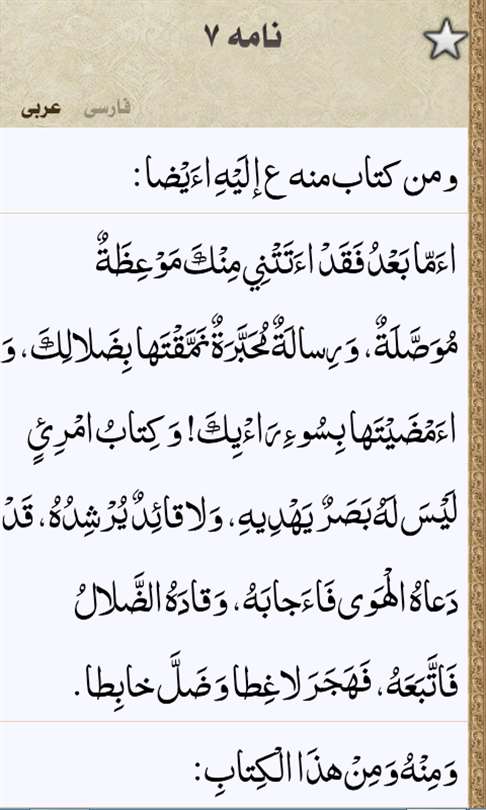 نامه ۷
فارسی عربی
و من كتاب منه ع إِلَيْهِ اءَيْضا :
اءَمّا بَعْدُ فَقَدْ اءَتَتْنِي مِنْكَ مَوْعِظَةٌ
مُوَصَّلَةٌ، وَ رِسالَةٌ مُحَبَّرَةٌ نَمَّقْتَها بِضَلالِكَ، وَ
اءَمْضَيْتَها بِسُوءِ رَاءْيِكَ! وَ كِتابُ امْرِئٍ
لَيْسَ لَهُ بَصَرٌ يَهْدِيهِ، وَلا قائِدٌ يُرْشِدُهُ، قَدْ
دَعاهُ الْهَوَى فَاءَجابَهُ، وَ قادَهُ الضَّلالُ
فَاتَّبَعَهُ، فَهَجَرَ لاغِطا وَ ضَلَّ خابِطا .
وَ مِنْهُ وَ مِنْ هذَا الْكِتابِ: